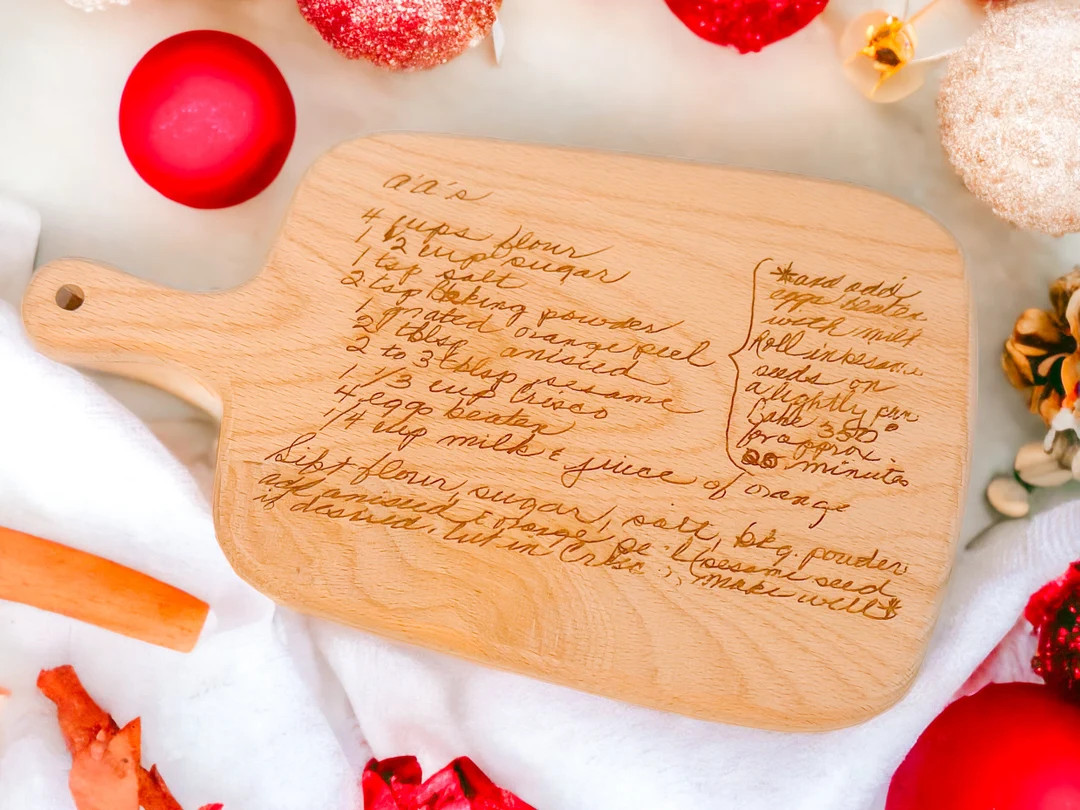 a'a's
4 cups flour
1 1/2 cup sugar
1 tsp salt
2 tsp Baking powder
1 grated orange peel
2 tblsp aniseed
2 to 3 tblsp sesame
1 1/3 cup Crisco
4 eggs beaten
1/4 cup milk & juice of orange
Sift flour, sugar, salt, bkg. powder,
add aniseed & orange (sesame seed
if desired, cut in Crisco make well*
*and add
eggs beaten
with milk
Roll in sesame
seeds on
a lightly
Bake 350°
for approx.
minutes